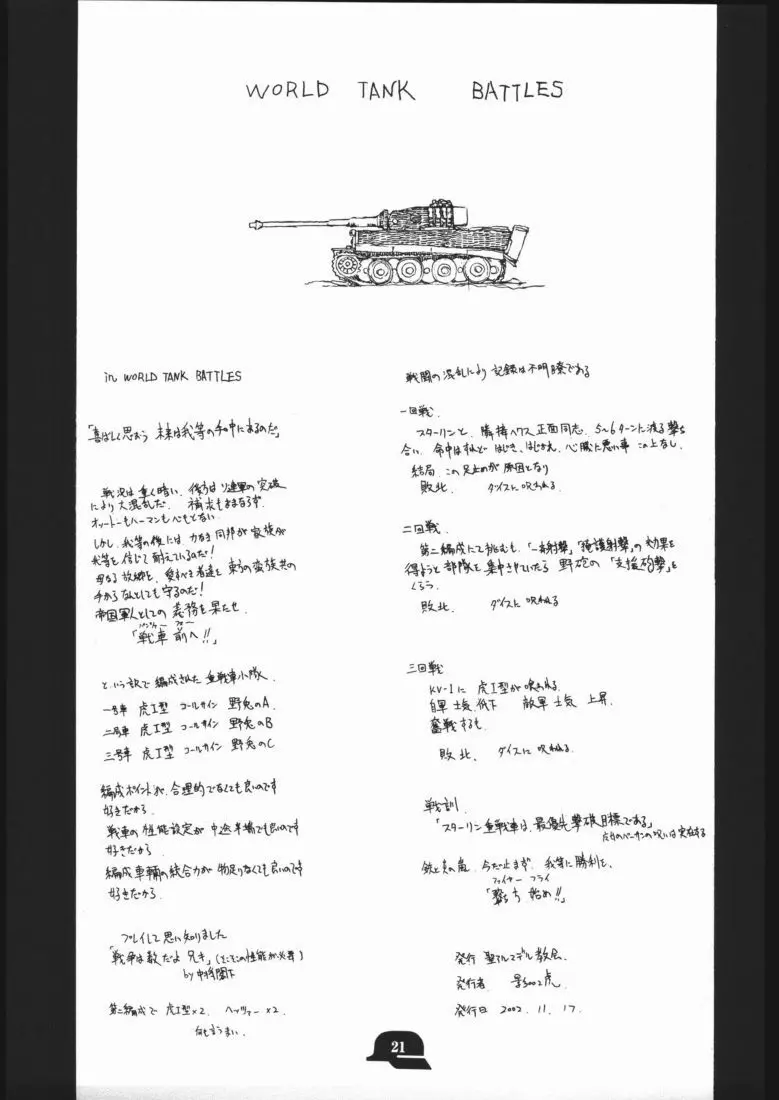 WORLD TANK BATTLES
in WORLD TANK BATTLES
「喜ばしく思おう 未来は我等の手中にあるのだ」
戦況は重く暗い、後方はソ連軍の突破
により大混乱だ。 補求もままならず
オットーもハーマンもべもとない
しかし、我等の後には 力なき同邦が 家族が
我等を信じて耐えているのだ!
母なる故郷と、愛すべき者達を 東方の蛮族共の
手からなんとしても守るのだ!
帝国軍人としての 義務を果たせ
パンツァー フォー
「戦車 前へ!!」
という訳で 編成された 重戦車小隊
一号車 虎I型 コールサイン 野兎のA
二号車 虎I型 コールサイン 野兎のB
三号車 虎I型 コールサイン 野兎のC
編成ポイントが、合理的でなくても良いのです
好きだから
戦車の性能設定が 中途半場でも良いのです
好きだから
編成車輛の統合力が 物足りなくても良いのです
好きだから
プレイして思い知りました
「戦争は数だよ 兄キ」(そこそこの性能が必要)
by 中将閣下
第二編成で 虎I型×2 ヘッツァー×2
何も言うまい
戦闘の混乱により 記録は不明瞭である
一回戦
スターリンと、隣接ヘクス正面同志、5〜6ターンに渡る撃ち
合い、命中はすれど はじき、はじかれ、心臓に悪い事 この上なし、
結局、この足止めが 原因となり
敗北 ダイスに呪われる
二回戦
第二編成にて挑むも、「一斉射撃」「掩護射撃」の効果を
得ようと部隊を集中させていたら 野砲の「支援砲撃」を
くらう
敗北 ダイスに呪われる
三回戦
KV-1に 虎I型が喰われる
自軍 士気 低下 敵軍 士気 上昇
奮戦するも
敗北、ダイスに呪われる
戦訓
「スターリン重戦車は、最優先撃破目標である」
の呪いは実在する
鉄と炎の嵐、今だ止まず、我等に勝利を、
ファイヤー フライ
「撃ち 始め!!」
発行 聖アルマデル教会
発行者 景3002虎
発行日 2002.11.17.
21